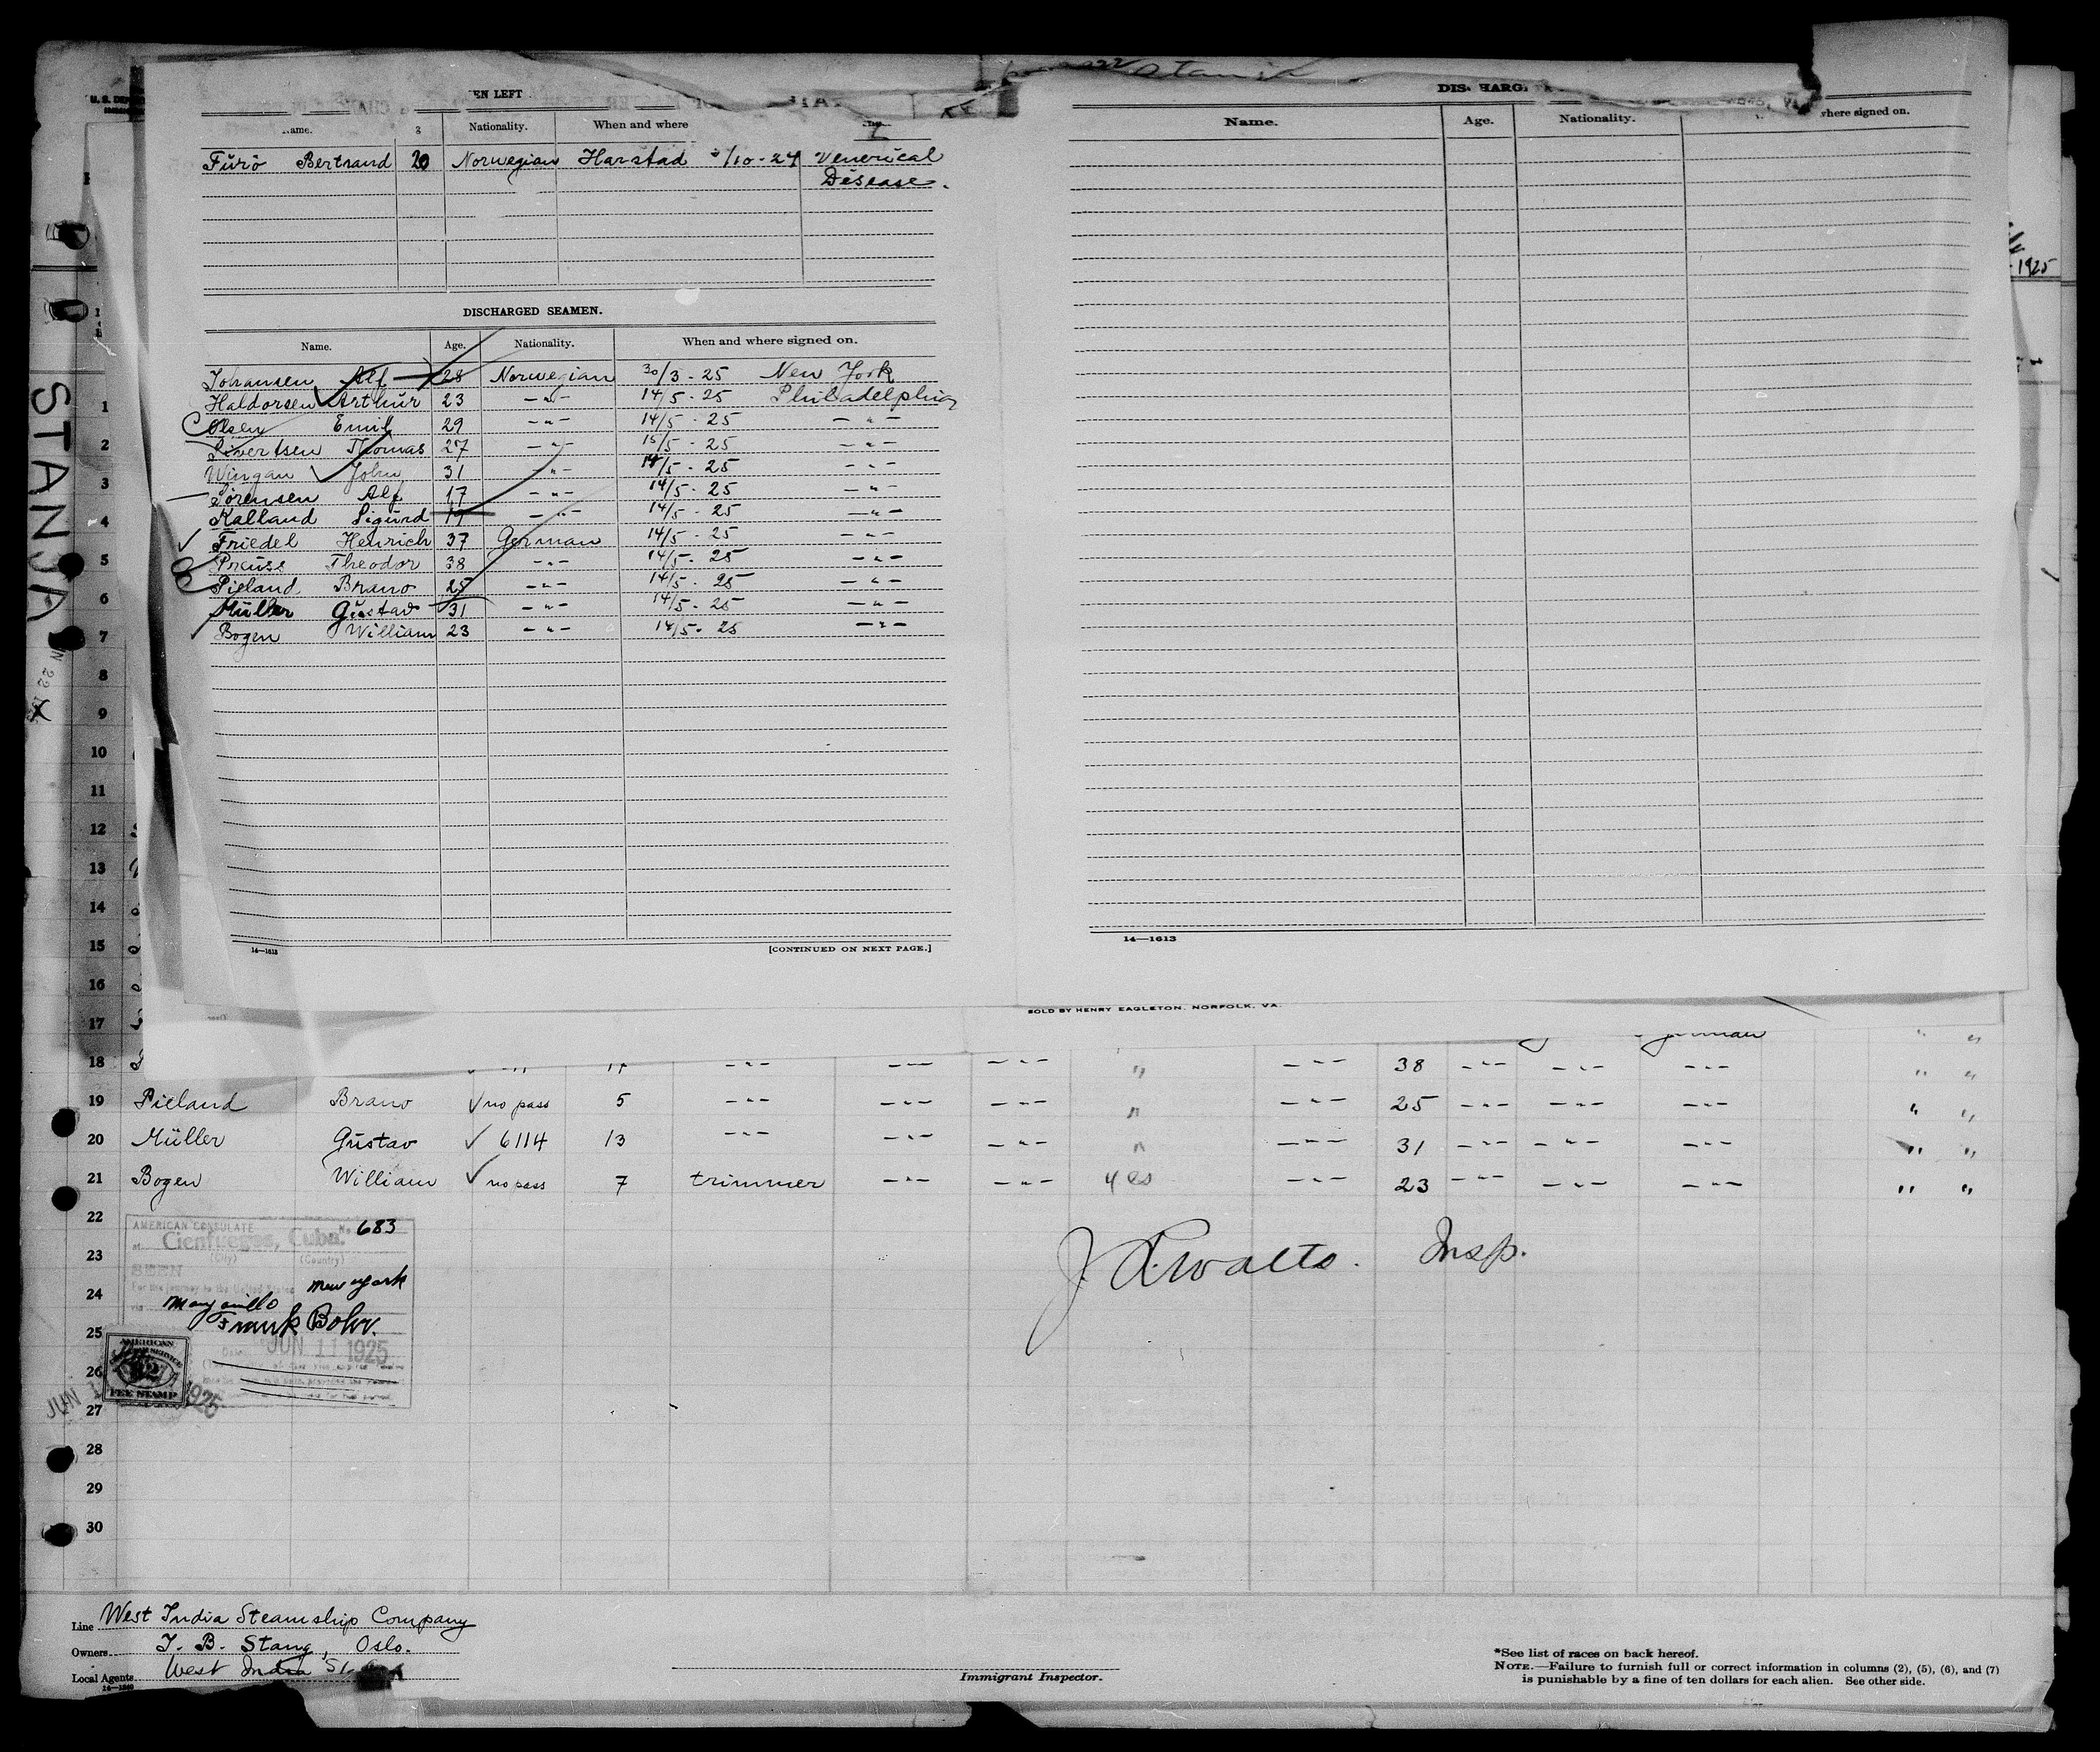 EN LEFT
Name. Nationality. When and where
Fürö Bertrand 20 Norwegian Harstad /10-24 Venerical
Disease.
DISCHARGED SEAMEN.
Name. Age. Nationality. When and where signed on.
Johansen Alf 28 Norwegian 30/3-25 New York
Haldorsen Arthur 23 -"- 14/5-25 Philadelphia
Olsen Emil 29 -"- 14/5-25 -"-
Sivertsen Thomas 27 -"- 15/5-25 -"-
Wingan John 31 -"- 14/5-25 -"-
Sörensen Alf 17 -"- 14/5-25 -"-
Kalland Sigurd 19 -"- 14/5-25 -"-
Friedel Heinrich 37 German 14/5-25 -"-
Preuss Theodor 38 -"- 14/5-25 -"-
Pieland Brano 25 -"- 14/5-25 -"-
Müller Gustav 31 -"- 14/5-25 -"-
Bogen William 23 -"- 14/5-25 -"-
14—1613 [CONTINUED ON NEXT PAGE.]
Name. Age. Nationality. where signed on.
14—1613
SOLD BY HENRY EAGLETON, NORFOLK, VA.
STANJA
1925
1
2
3
4
5
6
7
8
9
10
11
12
13
14
15
16
17 German
18 -"- -"- -"- " -"- 38 -"- -"- -"- " "
19 Pieland Brano ✓ no pass 5 -"- -"- -"- " -"- 25 -"- -"- -"- " "
20 Müller Gustav ✓ 6114 13 -"- -"- -"- " -"- 31 -"- -"- -"- " "
21 Bogen William ✓ no pass 7 trimmer -"- -"- yes -"- 23 -"- -"- -"- " "
22
23
24
25
26
27
28
29
30
AMERICAN CONSULATE No. 683
at Cienfuegos, Cuba.
(City) (Country)
SEEN
For the journey to the United States
New York
via Manzanillo
Frank Bohr.
Date JUN 11 1925
AMERICAN
SERVICE
FEE STAMP
JUN 1 1925
Insp.
Line West India Steamship Company
Owners J. B. Stang, Oslo.
Local Agents West India
Immigrant Inspector.
*See list of races on back hereof.
NOTE.—Failure to furnish full or correct information in columns (2), (5), (6), and (7)
is punishable by a fine of ten dollars for each alien. See other side.